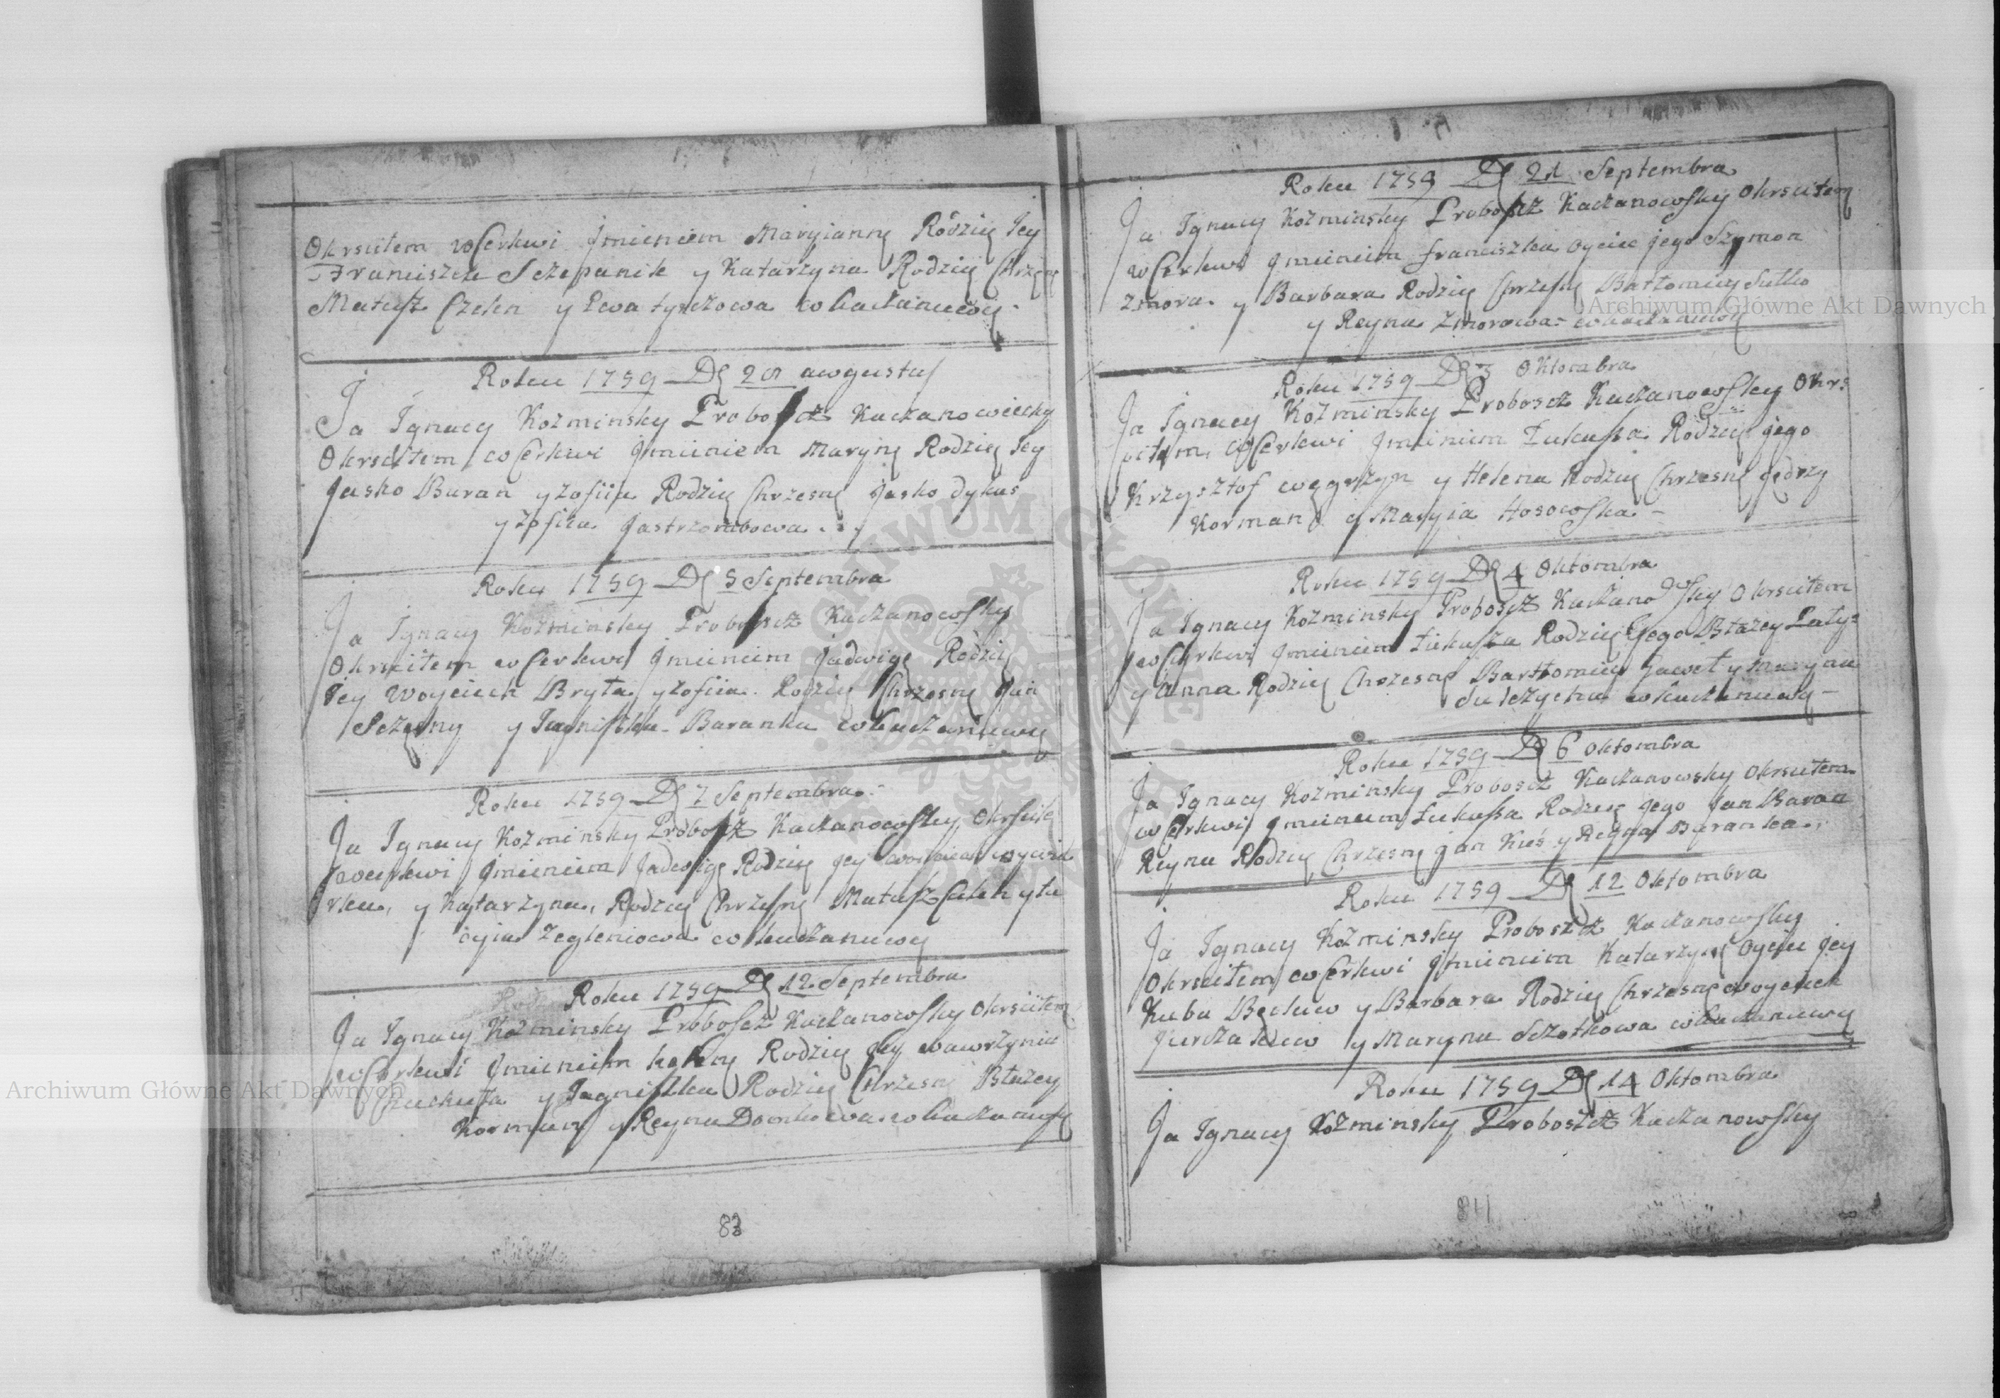 Okrsciłem w Cerkwi Jmieniem Maryianny Rodzicy Jey
Franciszek Sczepanik y Katarzyna Rodzicy Chrzęs
Matusz Czelen y Ewa w Kaczanuwcy.
Roku 1759 Dz 20 awgustus
Ja Jgnacy Kozminsky Probosćz Kaczanowiecky
Okrsciłem w Cerkwi Jmieniem Maryny Rodzicy Jey
Jasko Baran y Zofiia Rodzicy Chrzesny Jasko Dykas
y Zofiia Jastrzembowa.
Roku 1759 Dz 5 Septembra
Ja Jgnacy Kozminsky Probosćz Kaczanowsky
Okrsciłem w Cerkwi Jmieniem Jadwigi Rodzicy
Jey Woyciech Bryła y Zofiia. Rodzicy Chrzesny Jan
Sczęsny y Jagniszka Baranka w Kaczanuwcy
Roku 1759 Dz 7 Septembra
Ja Jgnacy Kozminsky Probosćz Kaczanowsky Okrsciłe
w Cerkwi Jmieniem Jadwigi Rodzicy Jey
y Katarzyna, Rodzicy Chrzesny Matusz y Łu
cyia Zegleniowa w Kaczanuwcy
Roku 1759 Dz 12 Septembra
Ja Jgnacy Kozminsky Probosćz Kaczanowsky Okrsciłem
w Cerkwi Jmieniem Rodzicy Jey Wawrzyniec
y Jagniszka Rodzicy Chrzesny Błazey
Korman y Reyna w Kaczanuwcy
83
Roku 1759 Dz 21 Septembra
Ja Jgnacy Kozminsky Probosćz Kaczanowsky Okrsciłem
w Cerkwi Jmieniem Franciszka Oyciec jego Szymon
Zmora y Barbara Rodzicy Chrzesny Bartłomiey Sutko
y Reyna Zmorowa w Kaczanuwcy
Roku 1759 Dz 3 Oktombra
Ja Jgnacy Kozminsky Probosćz Kaczanowskey Okrs
ciłem, w Cerkwi Jmieniem Łukasza Rodzicy jego
Krzysztof Węgrzyn y Helena Rodzicy Chrzesny Jędrzy
Korman y Maryia Hosowska
Roku 1759 Dz 4 Oktombra
Ja Jgnacy Kozminsky Probosćz Kaczanowskey Okrsciłem
w Cerkwi Jmieniem Łukasza Rodzicy jego Błazey Laty=
y Anna Rodzicy Chrzesny Bartłomiey Gaweł y Maryna
w Kaczanuwcy
Roku 1759 Dz 6 Oktombra
Ja Jgnacy Kozminsky Probosćz Kaczanowsky Okrsciłem
w Cerkwi Jmieniem Łukasza Rodzicy jego Jan Baran
Reyna Rodzicy Chrzesny Jan Kuś y Regna Baranka.
Roku 1759 Dz 12 Oktombra
Ja Jgnacy Kozminsky Probosćz Kaczanowsky
Okrsciłem w Cerkwi Jmieniem Katarzyny Oyciec Jey
Kuba Bęcław y Barbara Rodzicy Chrzesne Woyciech
y Maryna Sczotkowa w Kaczanuwcy
Roku 1759 Dz 14 Oktombra
Ja Jgnacy Kozminsky Probosćz Kaczanowsky
84
Archiwum Główne Akt Dawnych
Archiwum Główne Akt Dawnych